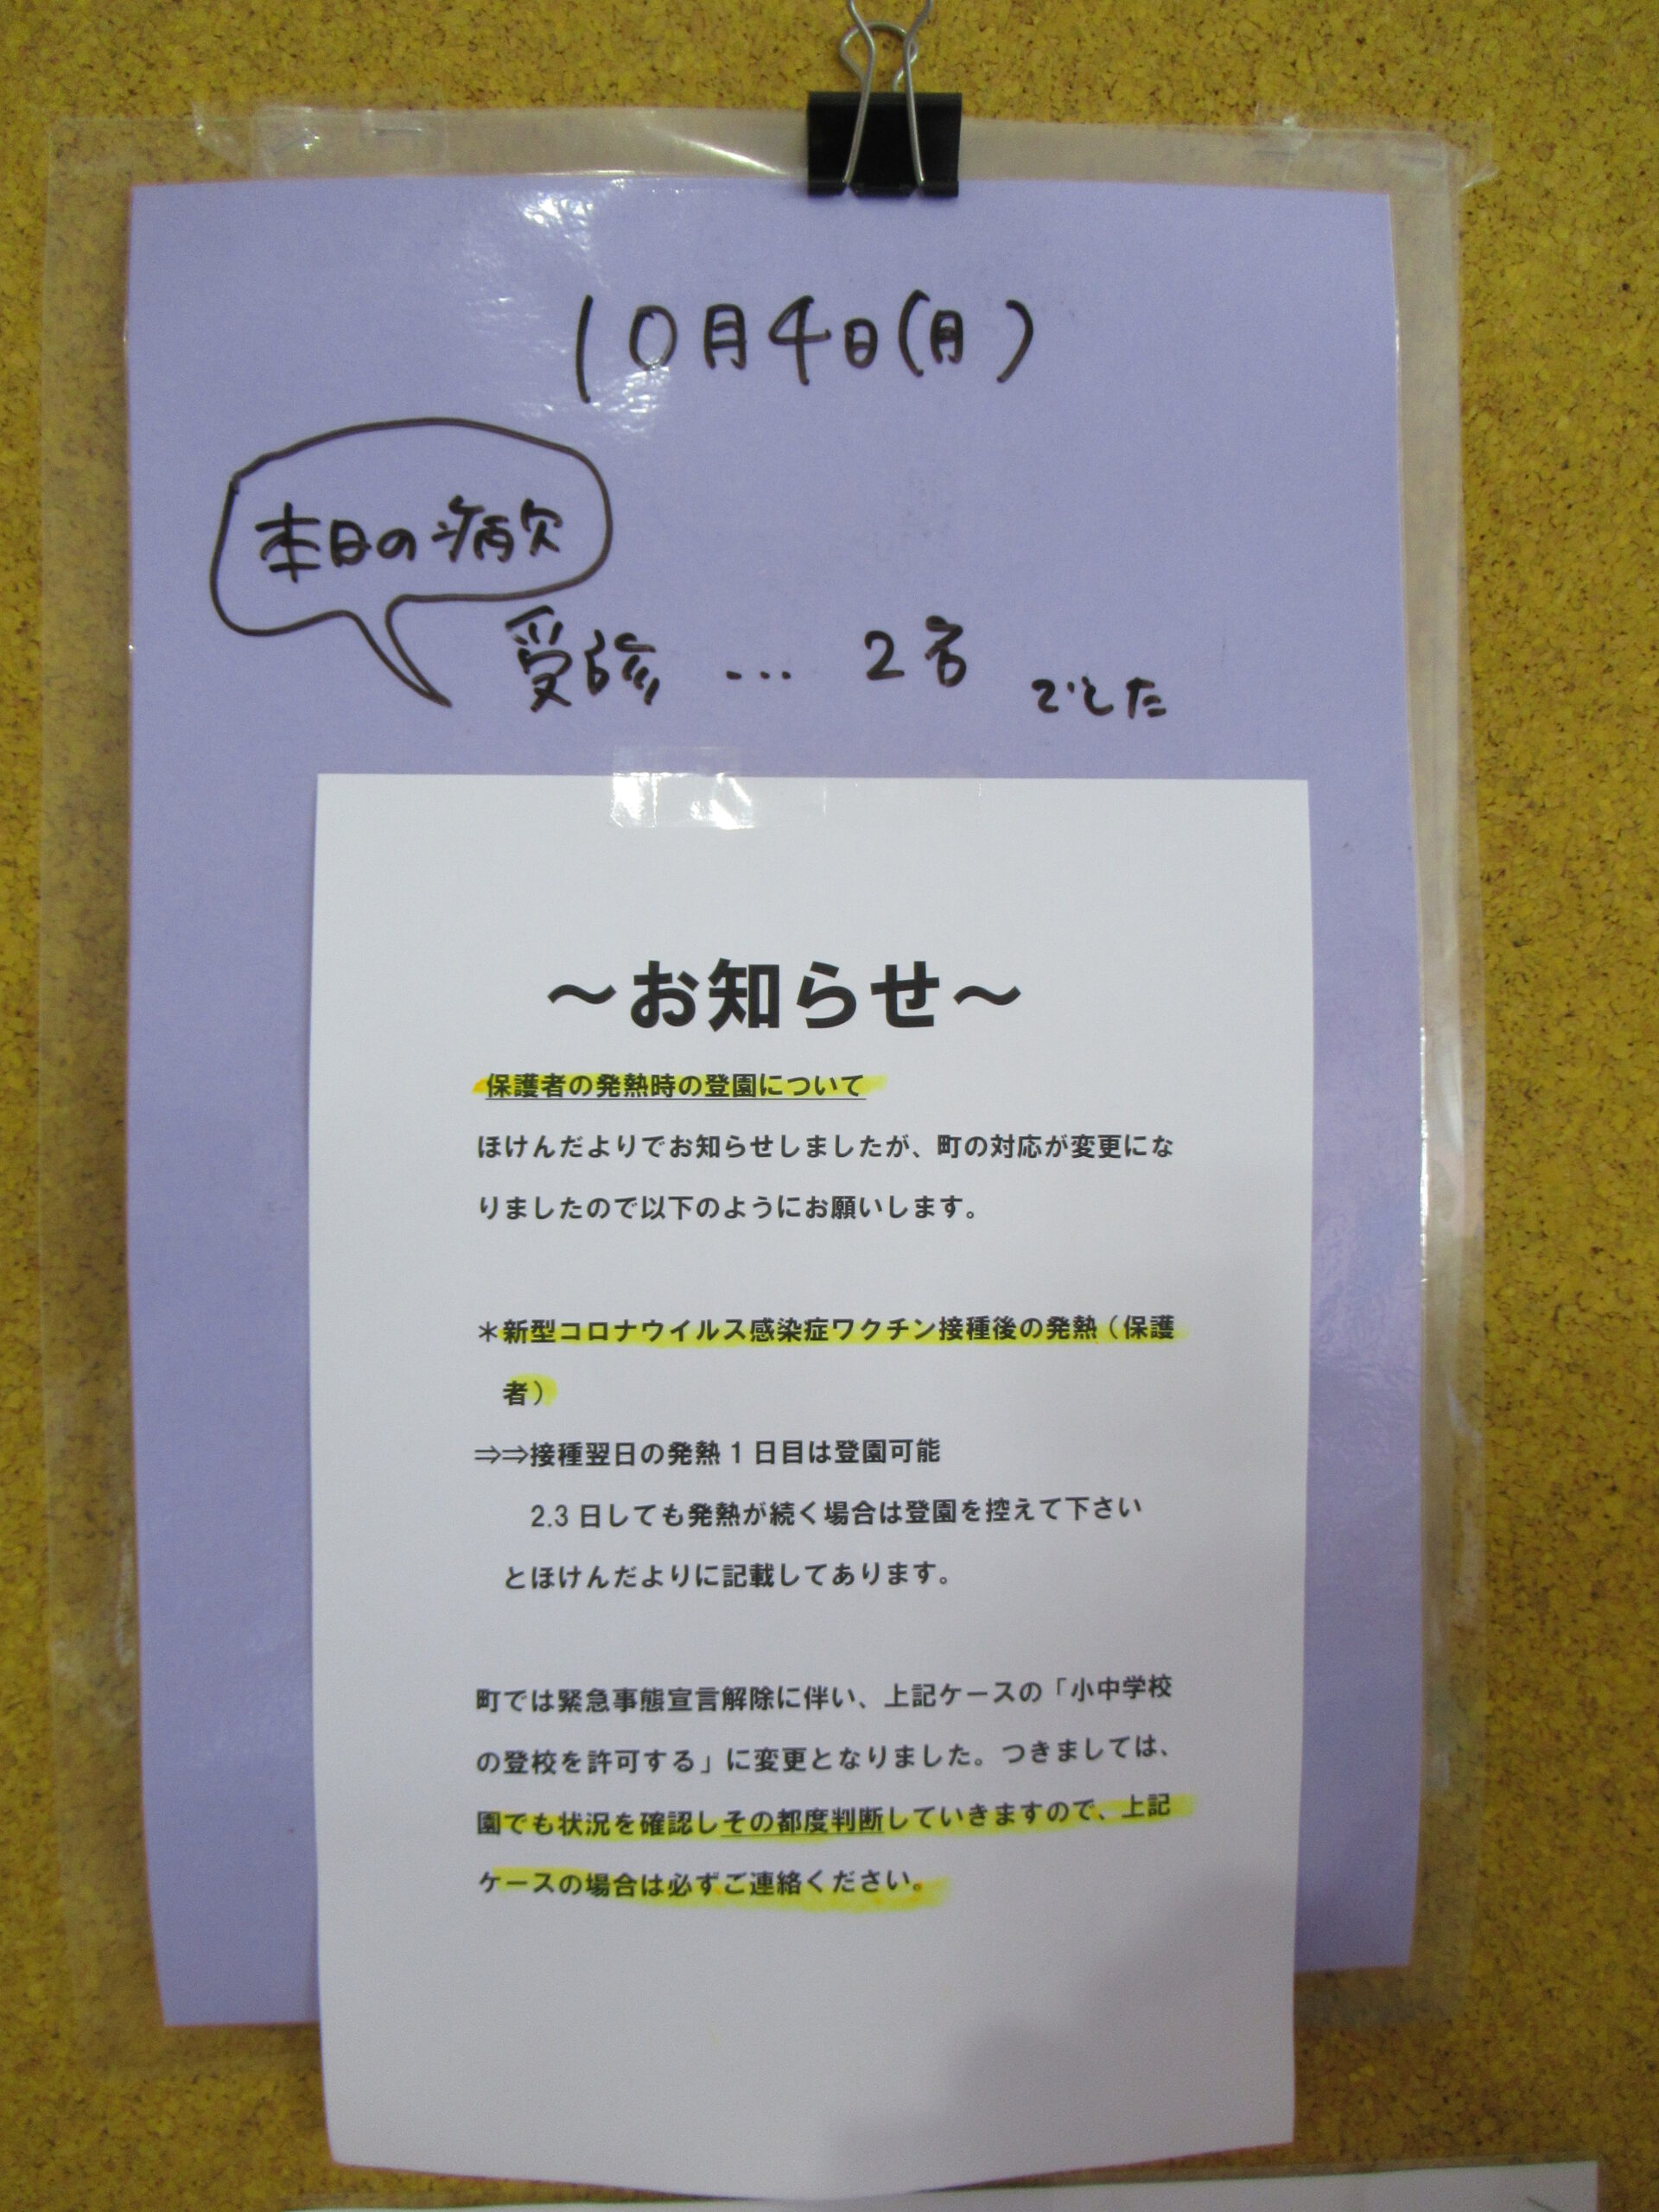 10月4日(月)
本日の病欠
受診 … 2名 でした
～お知らせ～
保護者の発熱時の登園について
ほけんだよりでお知らせしましたが、町の対応が変更にな
りましたので以下のようにお願いします。
＊新型コロナウイルス感染症ワクチン接種後の発熱（保護
者）
⇒⇒接種翌日の発熱1日目は登園可能
2.3日しても発熱が続く場合は登園を控えて下さい
とほけんだよりに記載してあります。
町では緊急事態宣言解除に伴い、上記ケースの「小中学校
の登校を許可する」に変更となりました。つきましては、
園でも状況を確認しその都度判断していきますので、上記
ケースの場合は必ずご連絡ください。